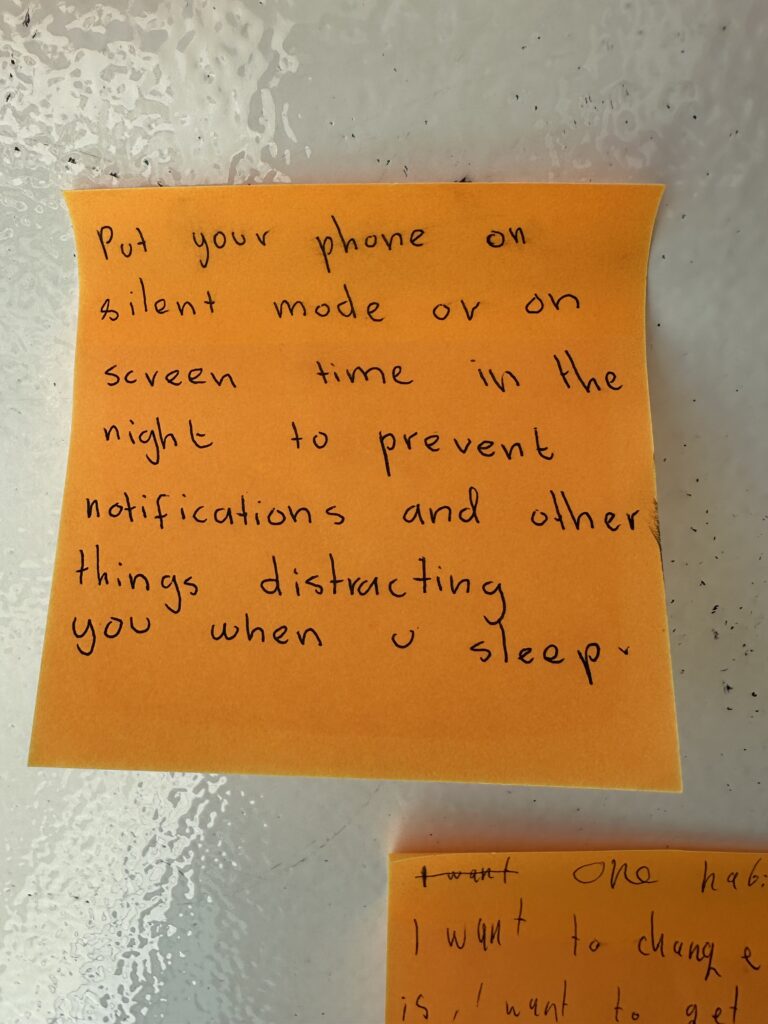 Put your phone on
silent mode or on
screen time in the
night to prevent
notifications and other
things distracting
you when u sleep.
I want One
I want to change
is, I want to get